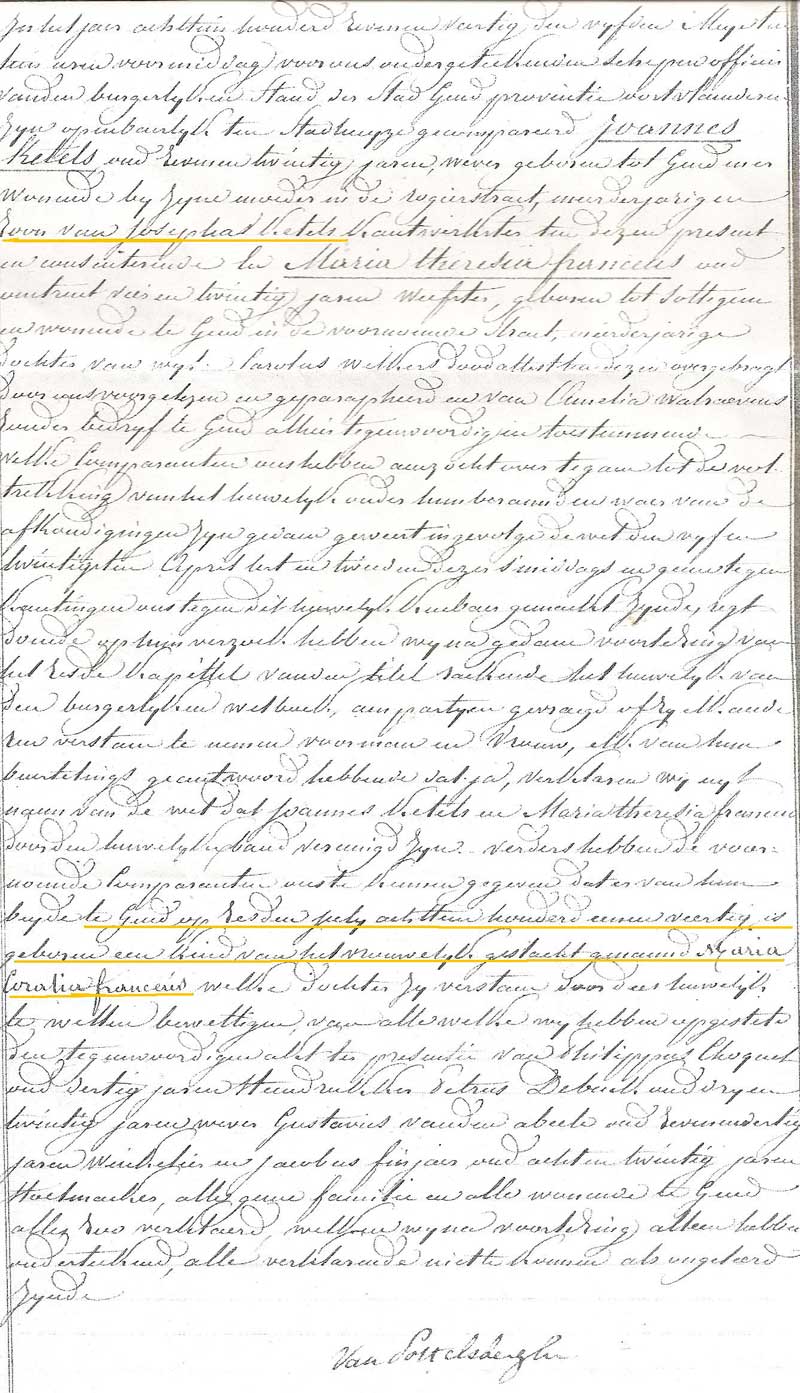 In het jaer achttien honderd zevenen veertig den vyfden Mey ten
thien uren voormiddag voor ons ondergeteekenden schepen officier
vanden burgerlyken Stand der Stad Gend provintie oostvlaenderen
Zyn openbaerlyk ten Stadhuyze gecompareerd Joannes
Ketels oud zevenentwintig jaren, wever geboren tot Gend en er
wonende by zyne moeder in de rogierstraet, meerderjarigen
zoon van Josephas Ketels kantwerkster ten dezen present
en consenterende en Maria theresia francens oud
omtrent vier en twintig jaren Weefster, geboren tot Sottegem
en wonende te Gend in de voornoemde Straet, meerderjarige
dochter van wyl. Carolus doodakt ten dezen overgebragt
door ons voorgelezen en geparapheerd en van Amelia Walraevens
zonder bedryf te Gend alhier tegenwoordig en toestemmende
welke Comparanten ons hebben aenzocht over te gaen tot de vol-
trekking van het huwelyk onder hun beraemd en waer van de
afkondigingen zyn gedaen geweest ingevolge de wet den vyf en
twintigsten April lest en tweeden dezer s'middags en geene tegen
kantingen ons tegen dit huwelyk kenbaer gemaekt zynde, regt
doende op hun verzoek hebben wy na gedaene voorlezing van
het zesde kapittel vanden titel raekende het huwelyk van
den burgerlyken wetboek, aen partyen gevraegd of zy elkande
ren verstaen te nemen voor man en Vrouw, elk van hun
beurtelings geantwoord hebbende dat ja, verklaren wy uyt
naem van de wet dat Joannes Ketels en Maria theresia francens
door den huwelyken band vereenigd zyn. verders hebben de voor-
noemde Comparanten ons te kennen gegeven dat er van hun
beyde te Gend op zesden july achttien honderd eenen veertig is
geboren een kind van het vrouwelyk geslacht genaemd Maria
Coralia francens welke dochter zy verstaen door dees huwelyk
te willen bewettigen, van alle welke wy hebben opgesteld
den tegenwoordigen akt ter presentie van Philippus Choquet
oud dertig jaren Petrus Debuck oud dry en
twintig jaren wever Gustavus vanden abeele oud zevenendertig
jaren Winkelier en Jacobus oud acht en twintig jaren
alle geene familie en alle wonende te Gend
allez zoo verklaerd, welke wy na voorlezing alleen hebben
onderteekend, alle verklarende niet te konnen als ongeleerd
zynde
Van Pottelsberghe